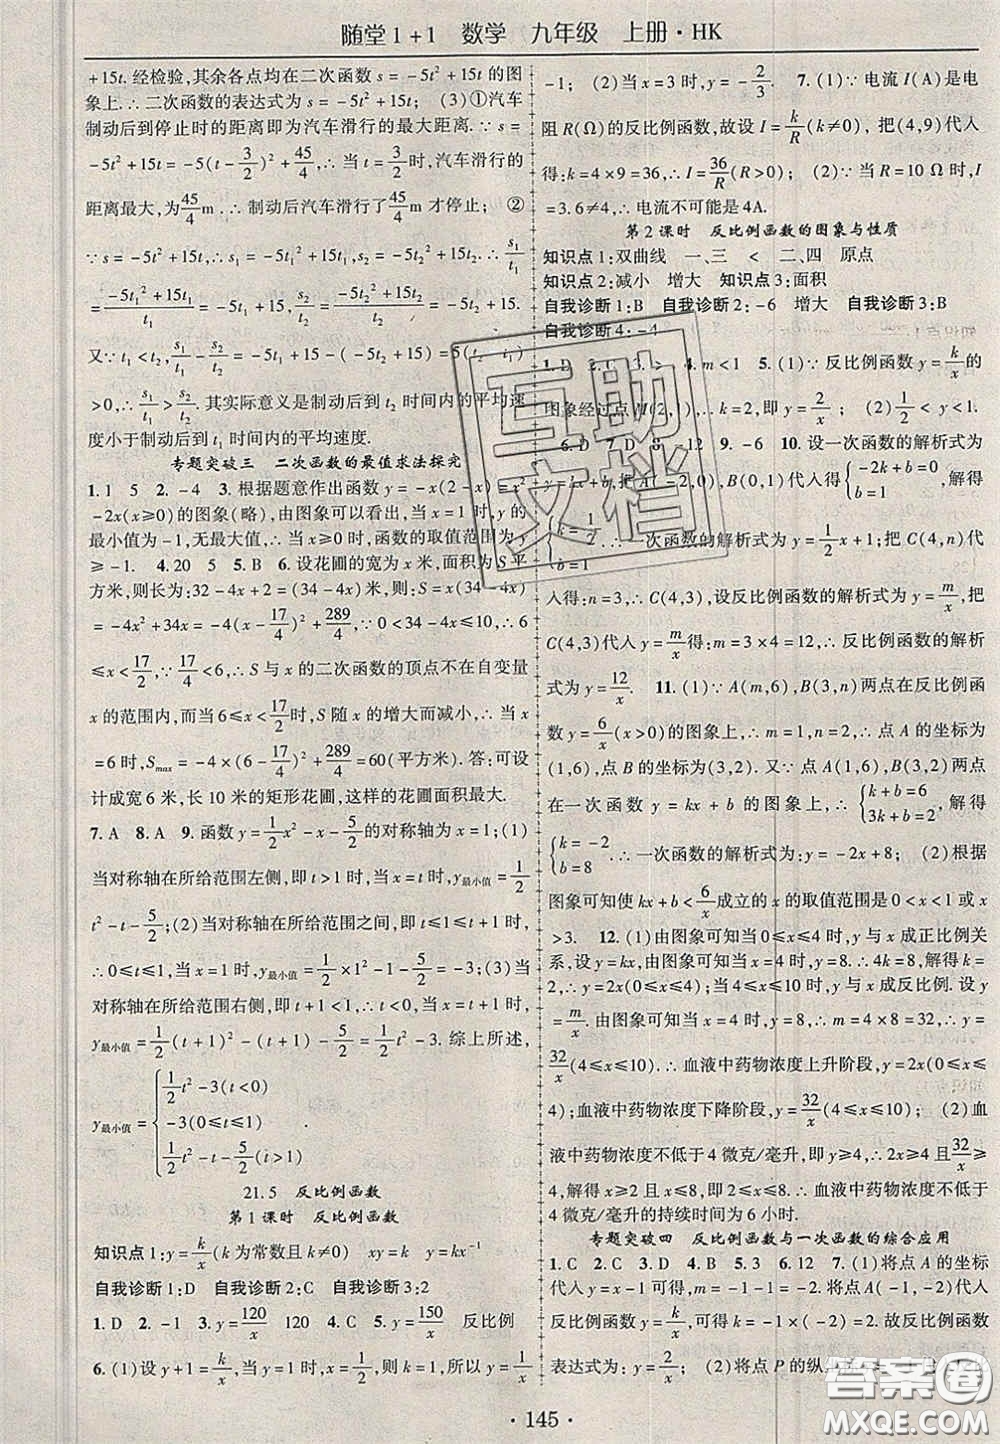 随堂1+1 数学 九年级 上册·HK
+15t.经检验,其余各点均在二次函数s=-5t²+15t的图
象上.∴二次函数的表达式为s=-5t²+15t; (3)①汽车
制动后到停止时的距离即为汽车滑行的最大距离.∵s=
-5t²+15t=-5(t-3/2)²+45/4,∴当t=3/2时,汽车滑行的
距离最大,为45/4m.∴制动后汽车滑行了45/4m才停止; ②
∵s=-5t²+15t,∴s₁=-5t₁²+15t₁,s₂=-5t₂²+15t₂.∴s₁/t₁
=(-5t₁²+15t₁)/t₁=-5t₁+15,s₂/t₂=(-5t₂²+15t₂)/t₂=-5t₂+15.
又∵t₁<t₂,s₁/t₁-s₂/t₂=-5t₁+15-(-5t₂+15)=5(t₂-t₁)
>0,∴s₁/t₁>s₂/t₂.其实际意义是制动后到t₂时间内的平均速
度小于制动后到t₁时间内的平均速度.
专题突破三 二次函数的最值求法探究
1.1 5 2.-4 3.根据题意作出函数y=-x(2-x)=x²
-2x(x≥0)的图象(略),由图象可以看出,当x=1时,y的
最小值为-1,无最大值,∴当x≥0时,函数的取值范围为y
≥-1. 4.20 5.B 6.设花圃的宽为x米,面积为S平
方米,则长为:32-4x+2=(34-4x)米,S=x(34-4x)
=-4x²+34x=-4(x-17/4)²+289/4,∵0<34-4x≤10,∴6
≤x<17/2,∵17/4<6,∴S与x的二次函数的顶点不在自变量
x的范围内,而当6≤x<17/2时,S随x的增大而减小,∴当x
=6时,Smax=-4×(6-17/4)²+289/4=60(平方米).答:可设
计成宽6米,长10米的矩形花圃,这样的花圃面积最大.
7.A 8.A 9.函数y=1/2x²-x-5/2的对称轴为x=1;(1)
当对称轴在所给范围左侧,即t>1时,当x=t时,y最小值=1/2
t²-t-5/2;(2)当对称轴在所给范围之间,即t≤1≤t+1时,
∴0≤t≤1,当x=1时,y最小值=1/2×1²-1-5/2=-3;(3)当
对称轴在所给范围右侧,即t+1<1,∴t<0,当x=t+1时,
y最小值=1/2(t+1)²-(t+1)-5/2=1/2t²-3.综上所述,
y最小值={1/2t²-3(t<0)
-3(0≤t≤1)
1/2t²-t-5/2(i>1)
21.5 反比例函数
第1课时 反比例函数
知识点1:y=k/x(k为常数且k≠0) xy=k y=kx⁻¹
自我诊断1:B 自我诊断2:C 自我诊断3:2
1.D 2.-1 3.y=120/x 120 4.C 5.y=150/x 反比例
6.(1)设y+1=k/x,当x=1时,y=0,则k=1,所以y=1/x
-1; (2)当x=3时,y=-2/3. 7.(1)∵电流I(A)是电
阻R(Ω)的反比例函数,故设I=k/R(k≠0),把(4,9)代入
得:k=4×9=36,∴I=36/R(R>0); (2)∵当R=10Ω时,I
=3.6≠4,∴电流不可能是4A.
第2课时 反比例函数的图象与性质
知识点1:双曲线 一、三 < 二、四 原点
知识点2:减小 增大 知识点3:面积
自我诊断1:B 自我诊断2:-6 增大 自我诊断3:B
自我诊断4:-4
1.D 2.1 3.> 4.m<1 5.(1)∵反比例函数y=k/x的
图象经过点 (2, ), k=2,即y=2/x; (2)0<y<1.
6.D 7.D 8.-12 9.-6 10.设一次函数的解析式为
y=kx+b,把A(-2,0),B(0,1)代入得{-2k+b=0
b=1,
{k=1/2
b=1 一次函数的解析式为y=1/2x+1;把C(4,n)代
入得:n=3,∴C(4,3),设反比例函数的解析式为y=m/x,把
C(4,3)代入y=m/x得:m=3×4=12,∴反比例函数的解析
式为y=12/x. 11.(1)∵A(m,6),B(3,n)两点在反比例函
数y=6/x(x>0)的图象上,∴m=1,n=2,∴点A的坐标为
(1,6),点B的坐标为(3,2).又∵A(1,6),B(3,2)两点
在一次函数y=kx+b的图象上,∴{k+b=6
3k+b=2,解得
{k=-2
b=8.∴一次函数的解析式为:y=-2x+8; (2)根据
图象可知使kx+b<6/x成立的x的取值范围是0<x<1或x
>3. 12.(1)由图象可知当0≤x≤4时,y与x成正比例关
系,设y=kx,由图象可知当x=4时,y=8.∴4k=8,解
得:k=2.∴y=2x(0≤x≤4).又由题意可知:当4≤x≤10时,y与x成反比例.设y
=m/x.由图象可知当x=4时,y=8.∴m=4×8=32,∴y=
32/x(4≤x≤10).∴血液中药物浓度上升阶段,y=2x(0≤x
≤4);血液中药物浓度下降阶段,y=32/x(4≤x≤10); (2)血
液中药物浓度不低于4微克/毫升,即y≥4,∴2x≥4且32/x
≥4,解得x≥2且x≤8.∴2≤x≤8,∴血液中药物浓度不低于
4微克/毫升的持续时间为6小时.
专题突破四 反比例函数与一次函数的综合应用
1.C 2.C 3.D 4.B 5.B 6.12 7.(1)将点A的坐标
代入y=x-1可得,m=-1-1=-2,将点A(-1,-2)代入
反比例函数y=k/x,可得,k=-1×(-2)=2,故反比例函数
表达式为:y=2/x; (2)将点P的纵
·145·
互助文档
答案圈
MXQE.COM